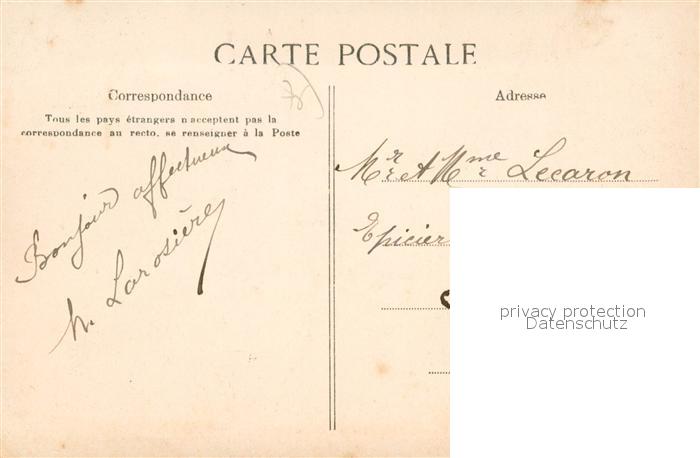 CARTE POSTALE
Correspondance
Tous les pays étrangers n'acceptent pas la
correspondance au recto, se renseigner à la Poste
Bonjour affectueux
Larosière
Adresse
Mr et Mme Lecaron
Epicier
privacy protection
Datenschutz